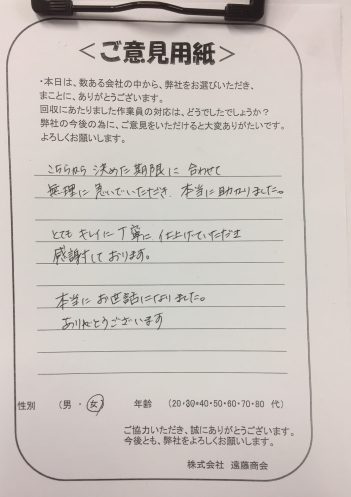 ＜ご意見用紙＞
・本日は、数ある会社の中から、弊社をお選びいただき、
まことに、ありがとうございます。
回収にあたりました作業員の対応は、どうでしたでしょうか？
弊社の今後の為に、ご意見をいただけると大変ありがたいです。
よろしくお願いします。
こちらから決めた期限に合わせて
無理に急いでいただき、本当に助かりました。
とてもキレイに丁寧に仕上げていただき
感謝しております。
本当にお世話になりました。
ありがとうございます
性別 （男・女） 年齢 （20・30・40・50・60・70・80 代）
ご協力いただき、誠にありがとうございます。
今後とも、弊社をよろしくお願いします。
株式会社 遠藤商会